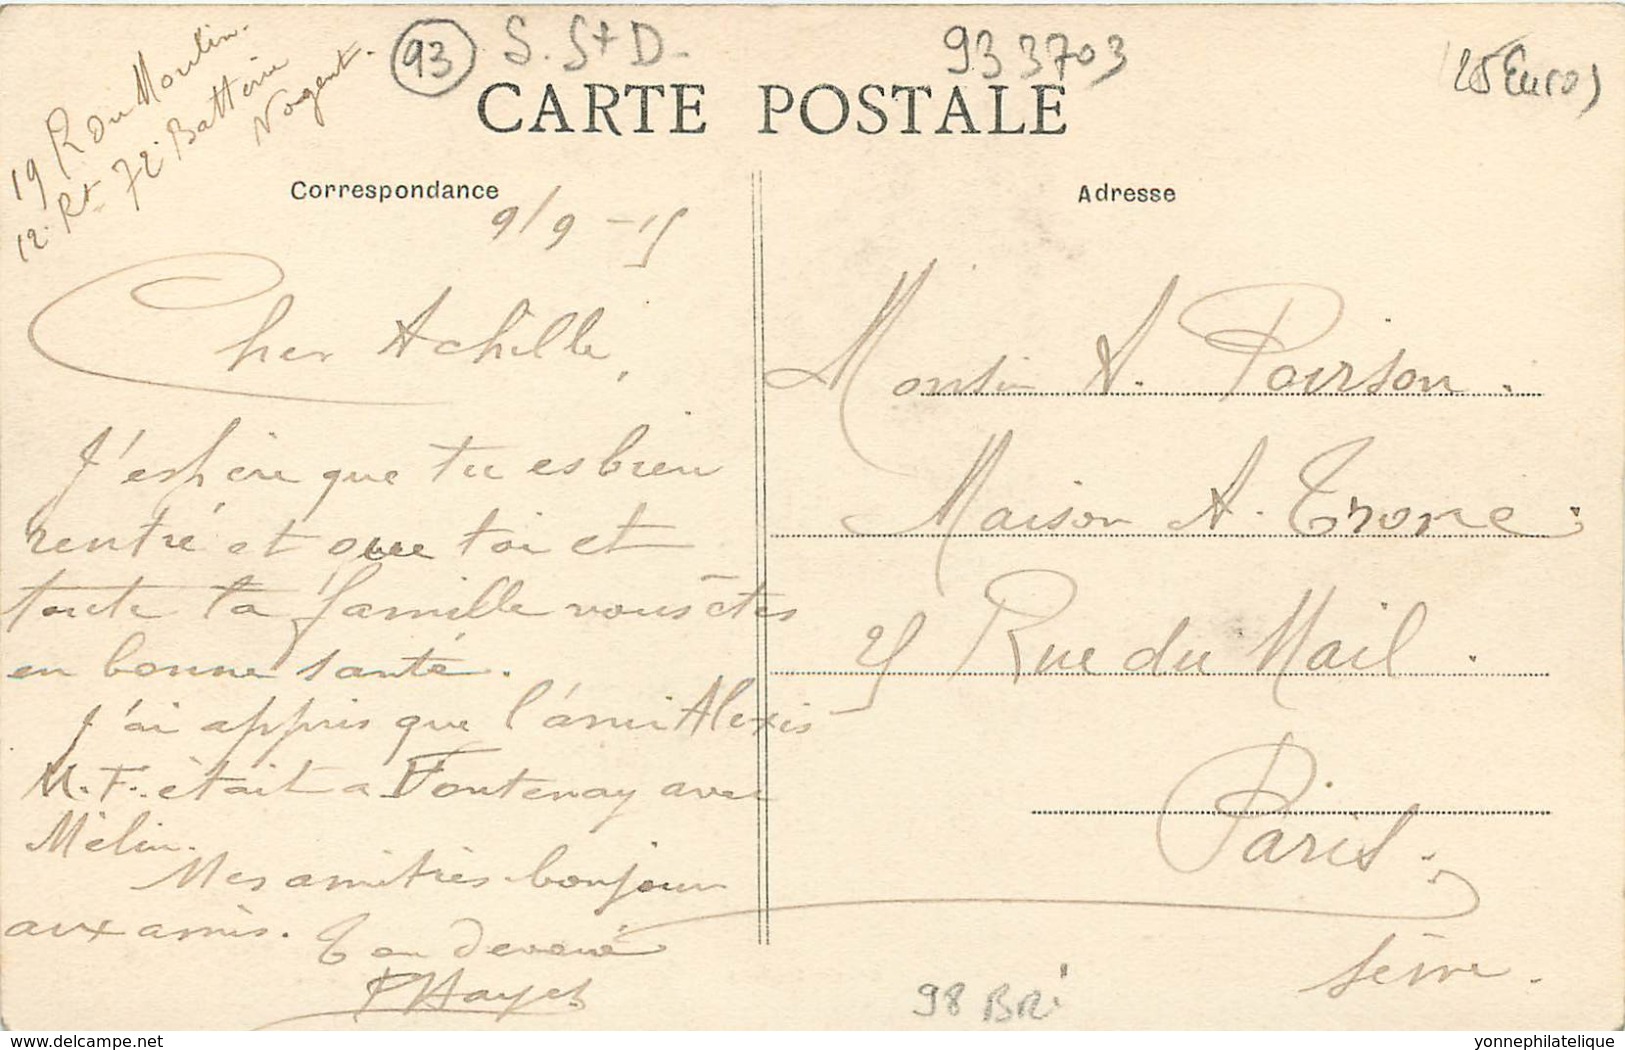 19 R. du Moulin.
12. Rt 72. Batterie
Nogent.
93 S. St D-
933703
25 Euros
CARTE POSTALE
Correspondance
Adresse
9/9 - 15
Cher Achille,
J'espère que tu es bien
rentré et que toi et
toute ta famille vous êtes
en bonne santé.
J'ai appris que l'ami Alexis
M. F. était a Fontenay avec
Mélin.
Mes amitiés bonjour
aux amis. Ton dévoué
Monsieur A. Poirson.
Maison A.
25 Rue du Mail.
Paris.
Seine.
98 BRI
delcampe.net
yonnephilatelique